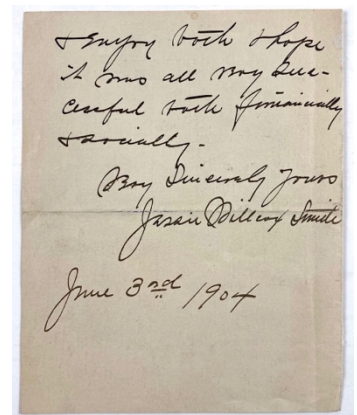 & enjoy both & hope
it was all very suc-
cessful both financially
& socially -
Very Sincerely Yours
Jessie Willcox Smith
June 3rd 1904